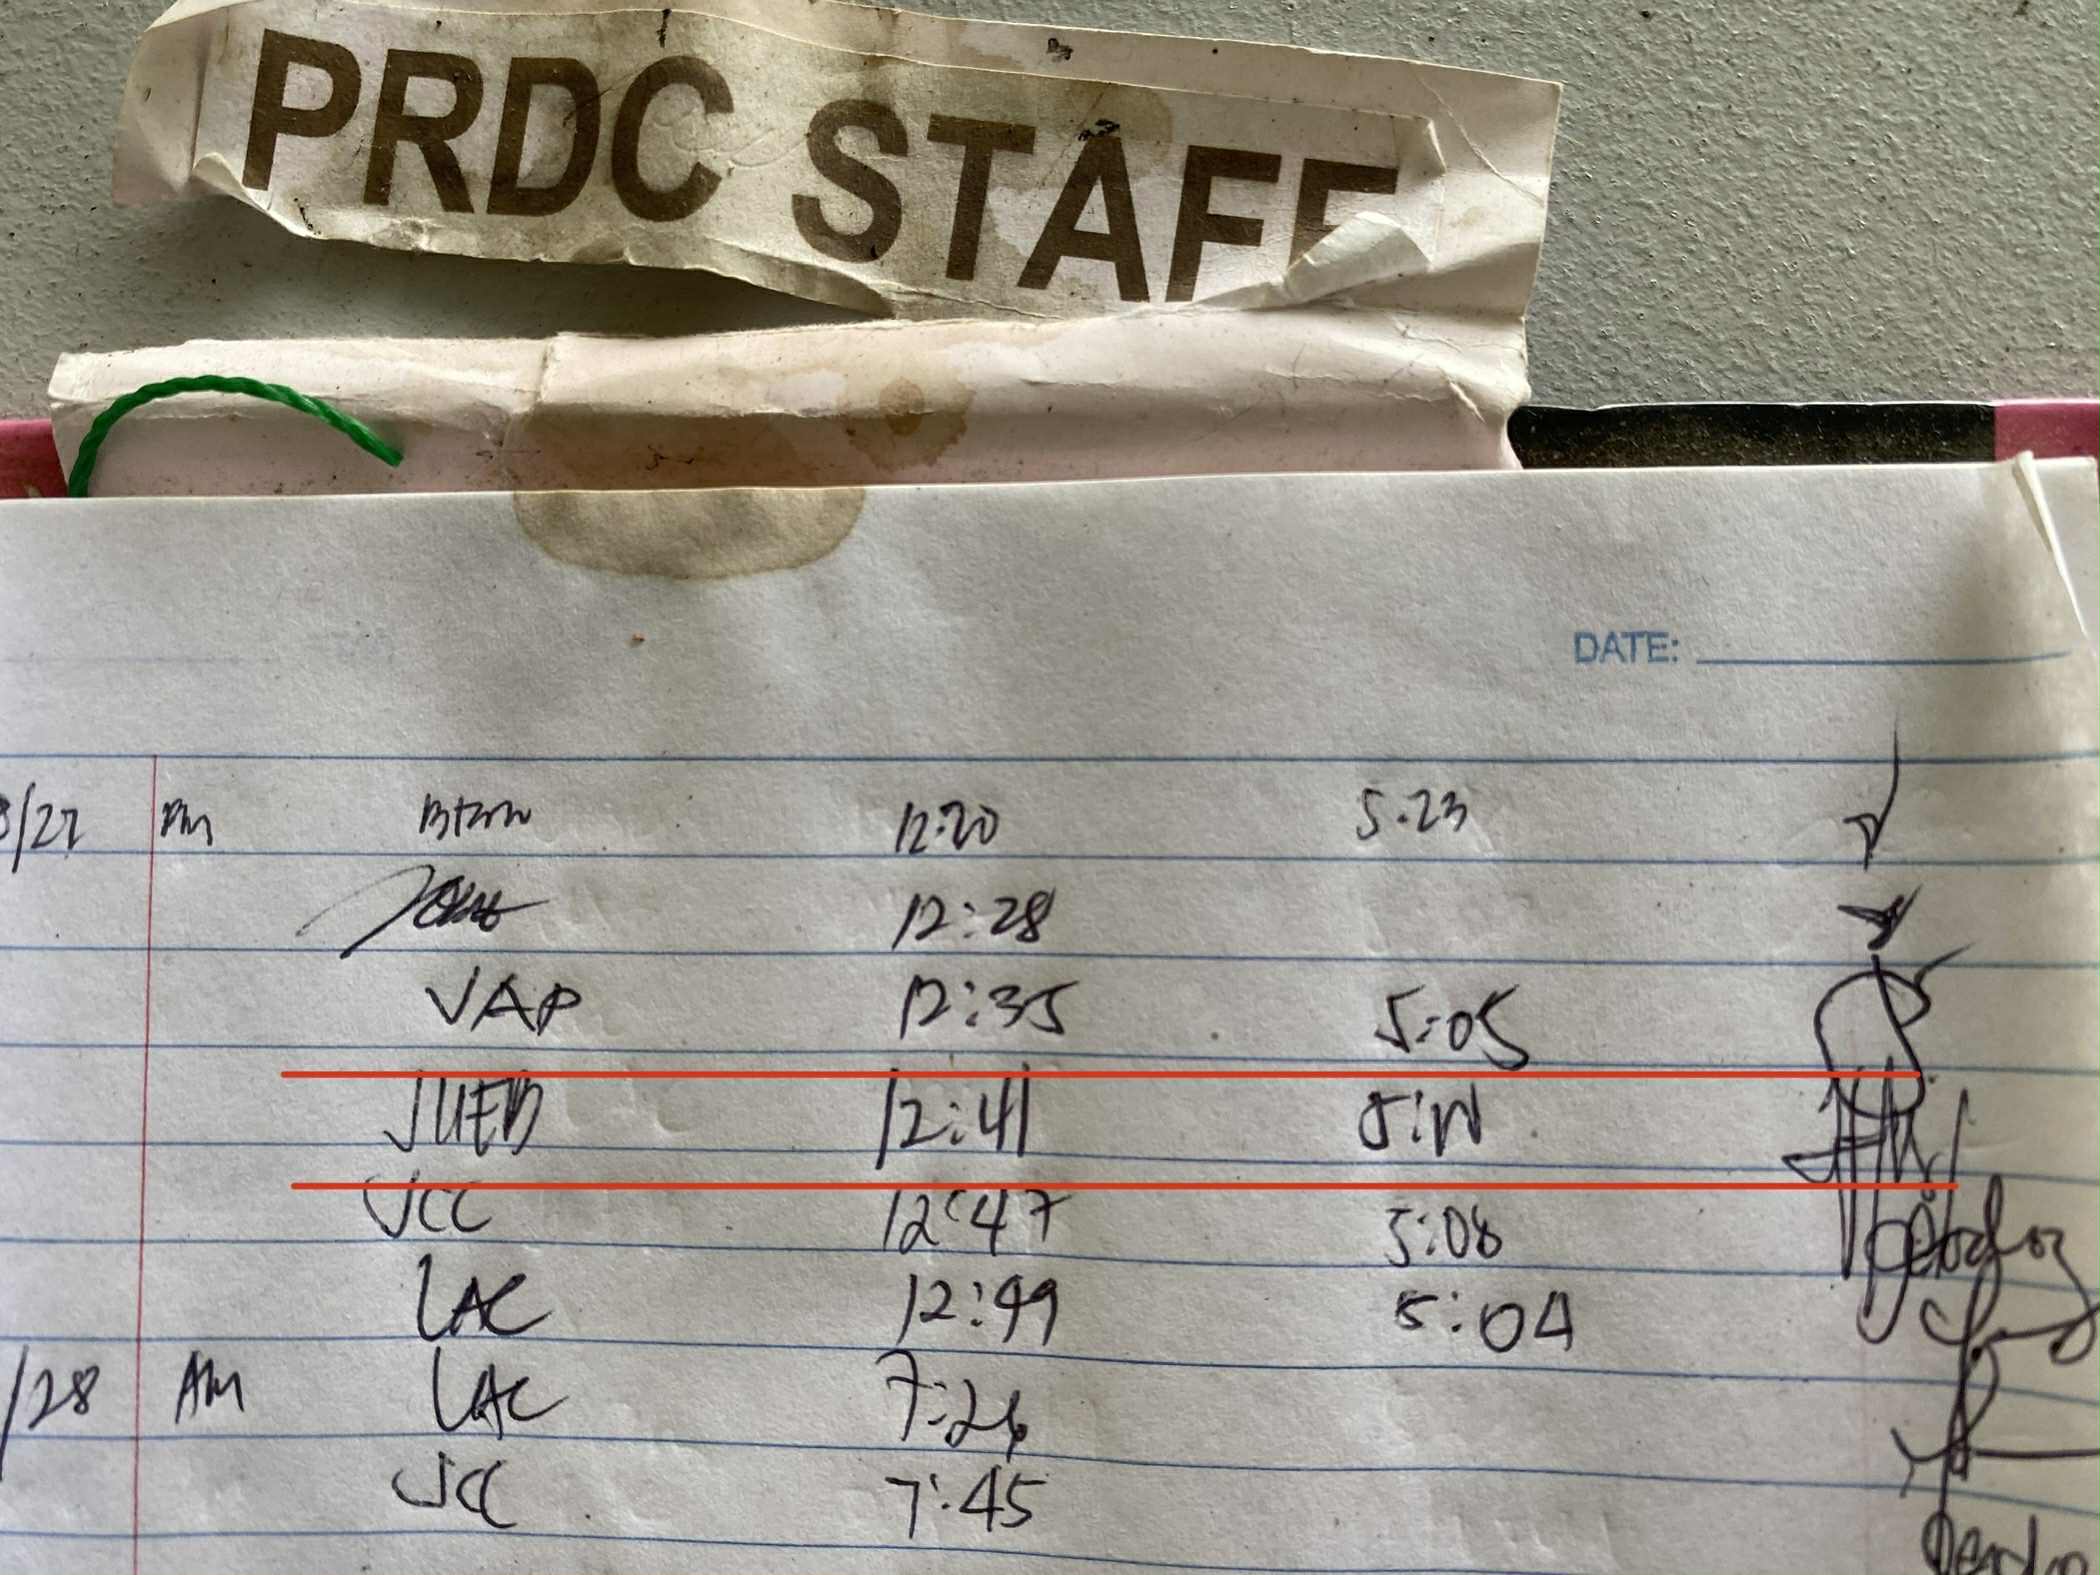 PRDC STAFF
DATE:
/27 PM 12:20 5:23
12:28
VAP 12:35 5:05
JUEB 12:41
JCC 12:47 5:08
LAC 12:49 5:04
/28 AM LAC 7:26
JCC 7:45